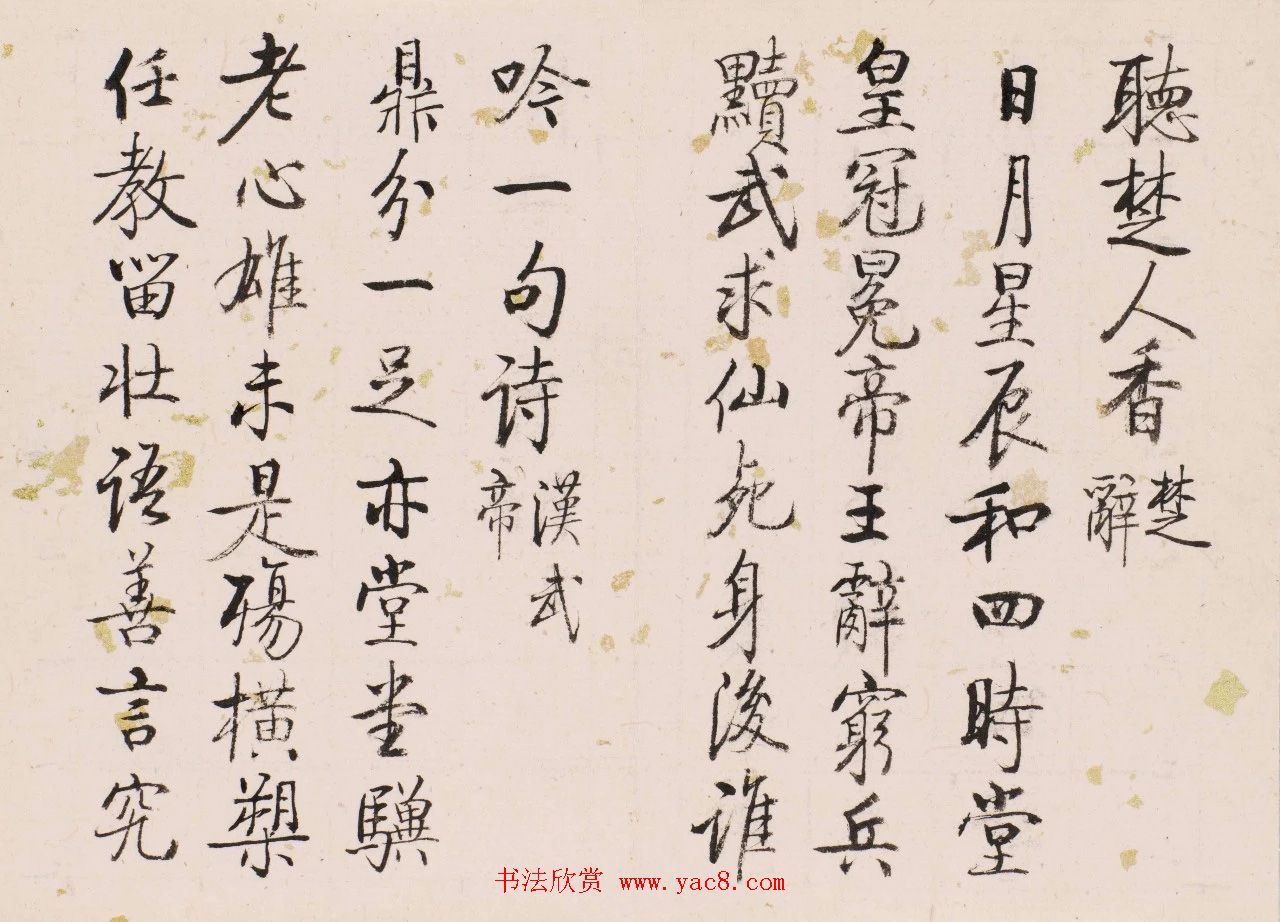 聽楚人香 楚辭
日月星辰和四時堂
皇冠冕帝王辭窮兵
黷武求仙死身後誰
吟一句詩 漢武帝
鼎分一足亦堂堂驥
老心雄未是殤橫槊
任教留壯語善言究
书法欣赏 www.yac8.com